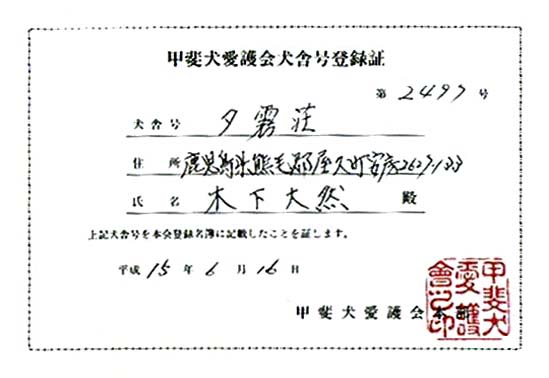 甲斐犬愛護会犬舎号登録証
第 2497 号
犬舎号 夕霧荘
住所 鹿児島県熊毛郡屋久町安房2627-133
氏名 木下大然 殿
上記犬舎号を本会登録名簿に記載したことを証します。
平成 15 年 6 月 16 日
甲斐犬愛護会本部
甲斐犬愛護會之印